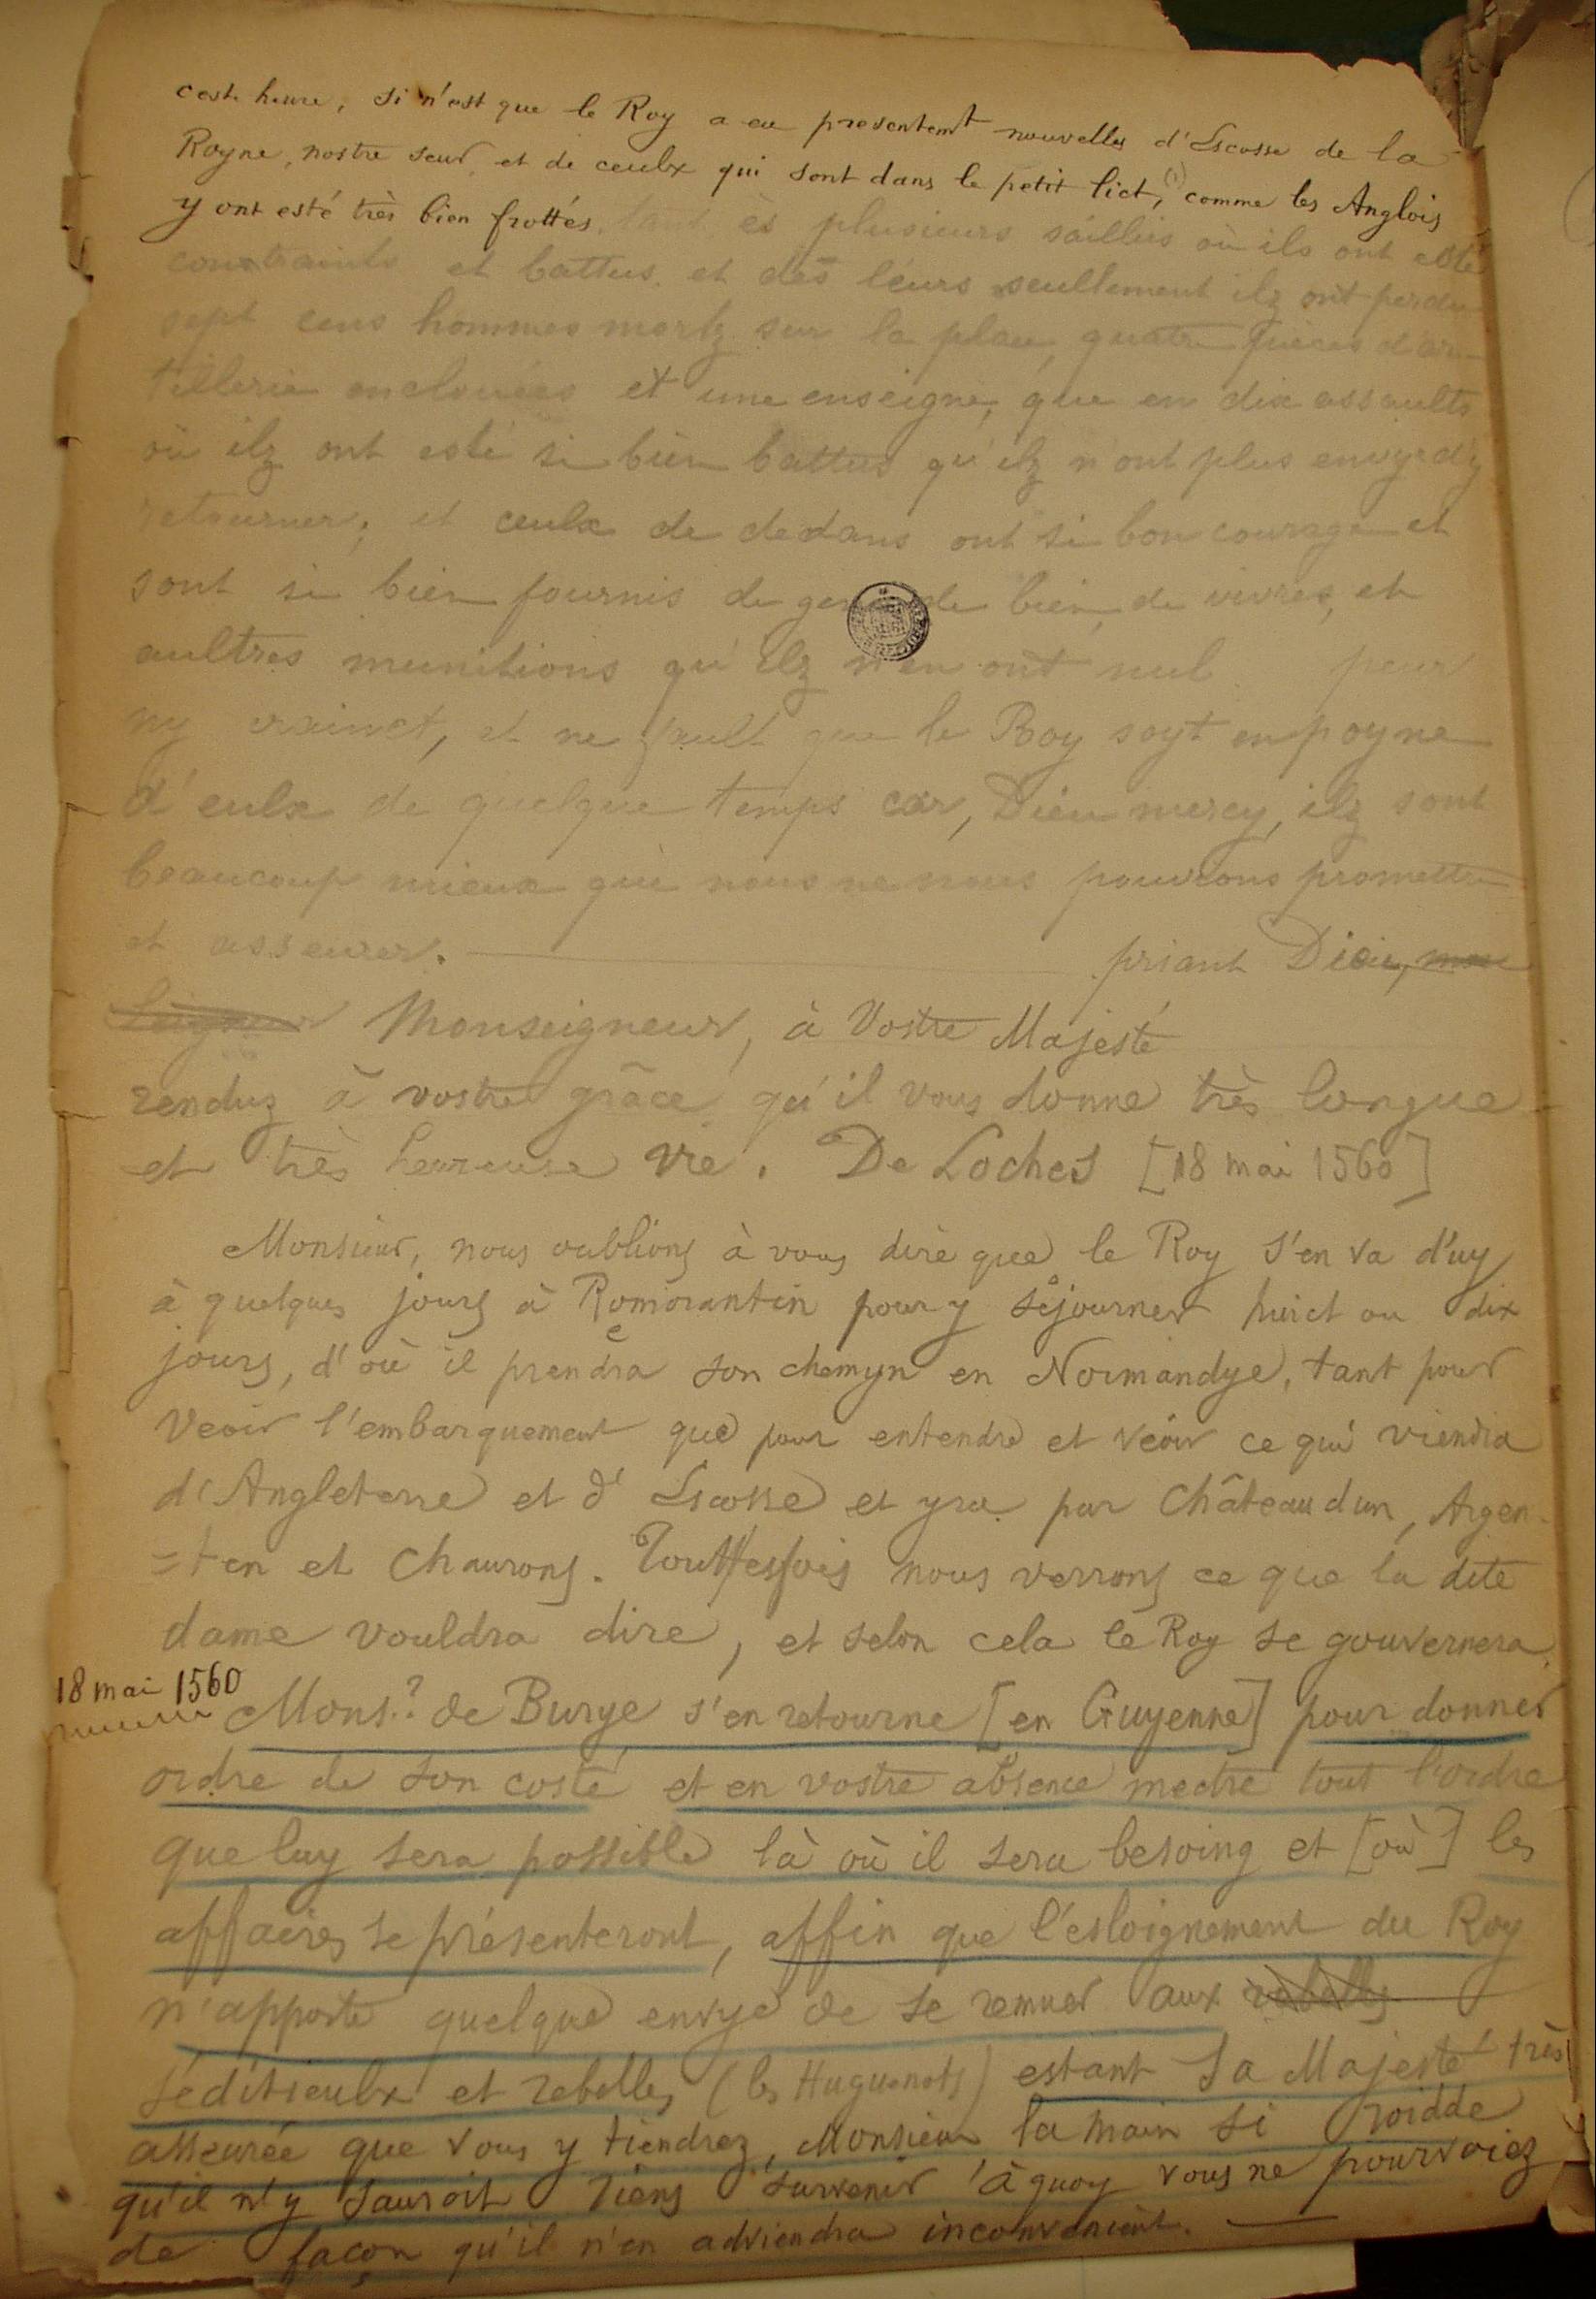 ceste heure, si n'est que le Roy a eu presentemt nouvelles d'Escosse de la
Royne, nostre seur, et de ceulx qui sont dans le petit lict, (1) comme les Anglois
y ont esté très bien frottés, tant ès plusieurs saillies où ils ont esté
contraints et battus, et des leurs seullement ilz ont perdu
sept cens hommes mortz sur la place, quatre pièces d'ar-
tillerie enclouées et une enseigne, que en dix assaults
où ilz ont esté si bien battus qu'ilz n'ont plus envye d'y
retourner; et ceulx de dedans ont si bon courage et
sont si bien fournis de gens de bien, de vivres, et
aultres munitions qu'ilz n'en ont nul peur
ny craincte, et ne fault que le Roy soyt en poyne
d'eulx de quelque temps car, Dieu mercy, ilz sont
beaucoup mieux que nous ne nous pouvions promettre
et asseurer. priant Dieu,
Monseigneur, à Vostre Majesté
rendus à vostre grâce qu'il vous donne très longue
et très heureuse vie. De Loches [18 mai 1560]
Monsieur, nous oublions à vous dire que le Roy s'en va d'uy
à quelques jours à Romorantin pour y séjourner huict ou dix
jours, d'où il prendra son chemyn en Normandye, tant pour
veoir l'embarquement que pour entendre et veoir ce qui viendra
d'Angleterre et d'Escosse et yra par Châteaudun, Argen-
=ten et Chaurons. Touttesfois nous verrons ce que la dite
dame vouldra dire, et selon cela le Roy se gouvernera.
18 mai 1560
Monsr de Burye s'en retourne [en Guyenne] pour donner
ordre de son costé et en vostre absence mectre tout l'ordre
que luy sera possible là où il sera besoing et [où] les
affaires se présenteront, affin que l'esloignement du Roy
n'apporte quelque envye de se remuer aux rebelles
séditieulx et rebelles (les Huguenots) estant Sa Majesté très
asseurée que vous y tiendrez, Monsieur la main si roidde
qu'il n'y sauroit riens survenir à quoy vous ne pourvoiez
de façon qu'il n'en adviendra inconvénient.